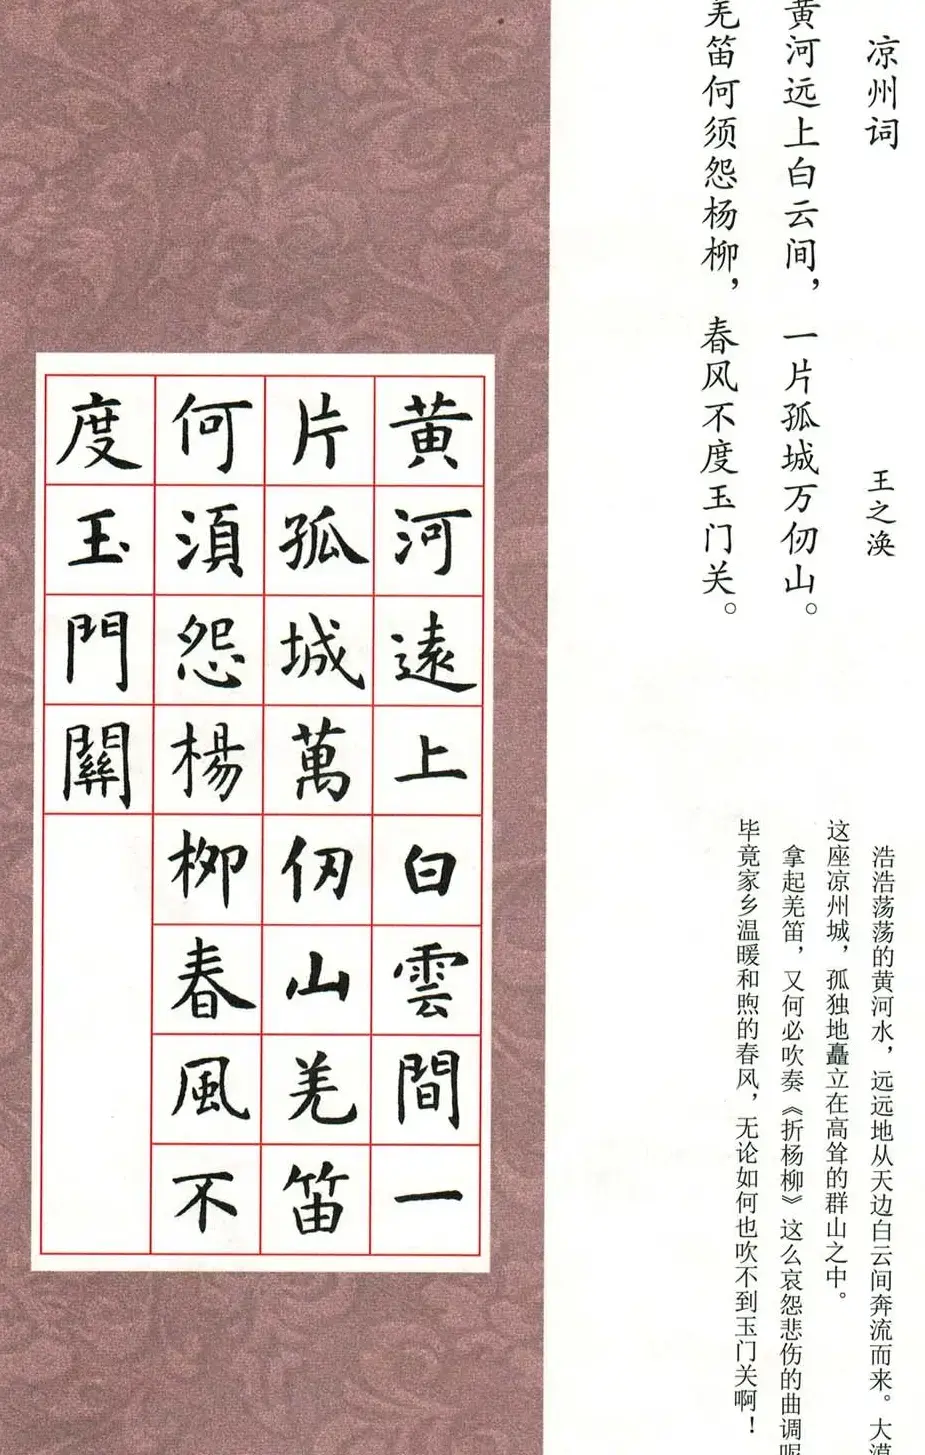 凉州词
王之涣
黄河远上白云间，一片孤城万仞山。
羌笛何须怨杨柳，春风不度玉门关。
浩浩荡荡的黄河水，远远地从天边白云间奔流而来。大漠
这座凉州城，孤独地矗立在高耸的群山之中。
拿起羌笛，又何必吹奏《折杨柳》这么哀怨悲伤的曲调呢
毕竟家乡温暖和煦的春风，无论如何也吹不到玉门关啊！
黄河遠上白雲間一
片孤城萬仞山羌笛
何須怨楊柳春風不
度玉門關